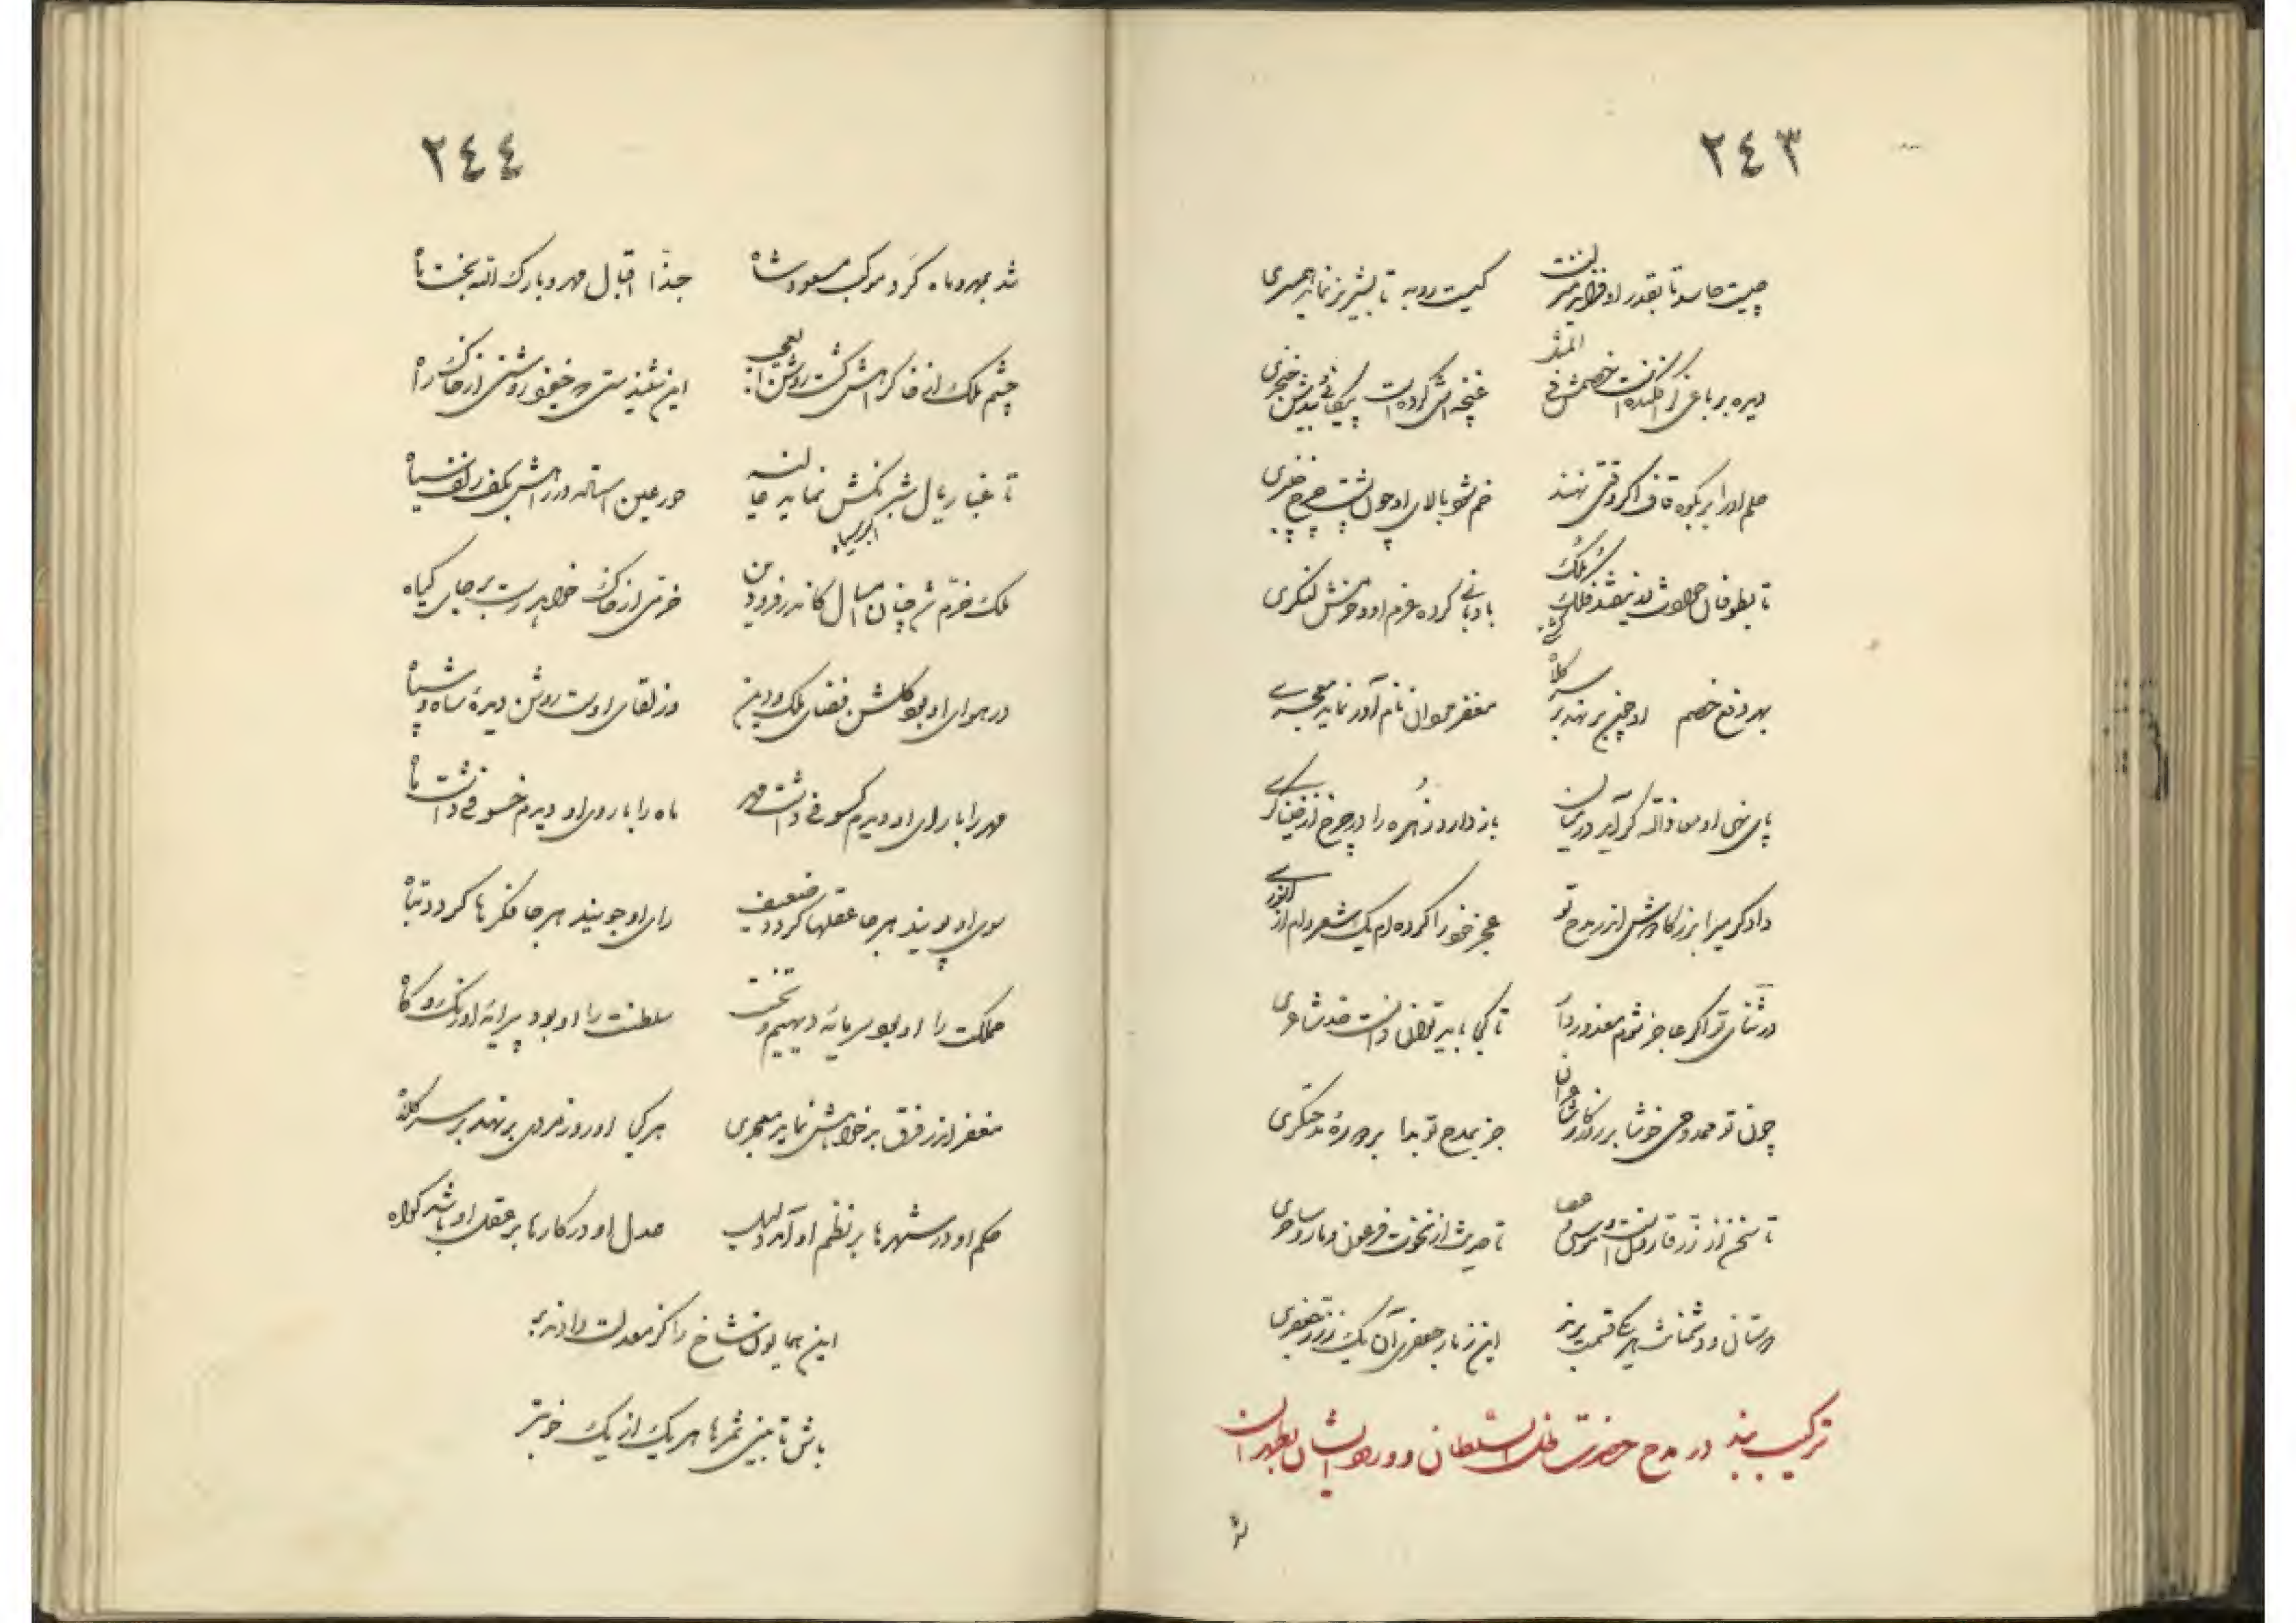 ٢٤٣
چیست حاسد تا بقدر او فزاید منزلت
کیست روبه تا بشیر نر نماید همسری
دیده بر باغی کز افکنده است خصمش
غنچه اش کرده است پیکانی و بیدش خنجری
حلم او را بر بکوه قاف اگر وقتی نهند
خم شود بالای او چون پشت چرخ چنبری
تا بطوفان حوادث نشد فلک
بادبانی کرده عزم او و حزمش لنگری
بهر دفع خصم او چون بر نهد بر سر کلاه
مغفر مردان نام آور نماید معجری
پای نهی او من فاته گر آید در میان
باز دارد زهره را در چرخ از خنیاگری
دادگر میرا بزرگا در مدح تو
عجز خود را کرده ام یک شعر وام از انوری
در ثنای تو اگر عاجز شوم معذور دار
تا کی باید توان دانست حد شاعری
چون تو ممدوحی خوشا بر روزگار شاعران
جز بمدح تو بدا بر دوره مدحتگری
تا سخن از زر قارون است و موسی و عصا
تا حدیث از نخوت فرعون و مار و ساحری
دوستان و دشمنانت هر یکی قسمت برند
این ز نار جعفری آن یک ز زر جعفری
ترکیب بند در مدح حضرت ظل السلطان و ورود ایشان بطهران
شد
٢٤٤
شد بمهر و ماه گرد موکب مسعود شاه
حبذا اقبال مهر و بارک الله بخت ماه
چشم ملک از خاک راهش گشت روشن ای عجب
این شنیدستی که خیزد روشنی از خاک راه
تا غبار یال شبرنگش نماید جا
حور عین استاده در راهش بکف زلف سیاه
ملک خرم شد چنان امسال کاندر فرودین
خرمی از خاک خواهد رست بر جای گیاه
در هوای او بود گلشن فضای ملک و دین
وز لقای اوست روشن دیده شاه و سپاه
مهر را با رای او دیدم کسوفی داشت مهر
ماه را با روی او دیدم خسوفی داشت ماه
سوی او پویند هر جا عقلها گردد ضعیف
رای او جویند هر جا فکرها گردد تباه
مملکت را او بود سرمایه دیهیم و تخت
سلطنت را او بود پیرایه اورنگ و گاه
مغفر از فرق بدخواهش نماید معجری
هر کجا او روز مردی بر نهد بر سر کلاه
حکم او در شهرها بر نظم او آمد دلیل
عدل او در کارها بر عقل او باشد گواه
این همایون شاخ را کز معدلت دادند بر
باش تا بینی ثمرها هر یک از یک خوبتر